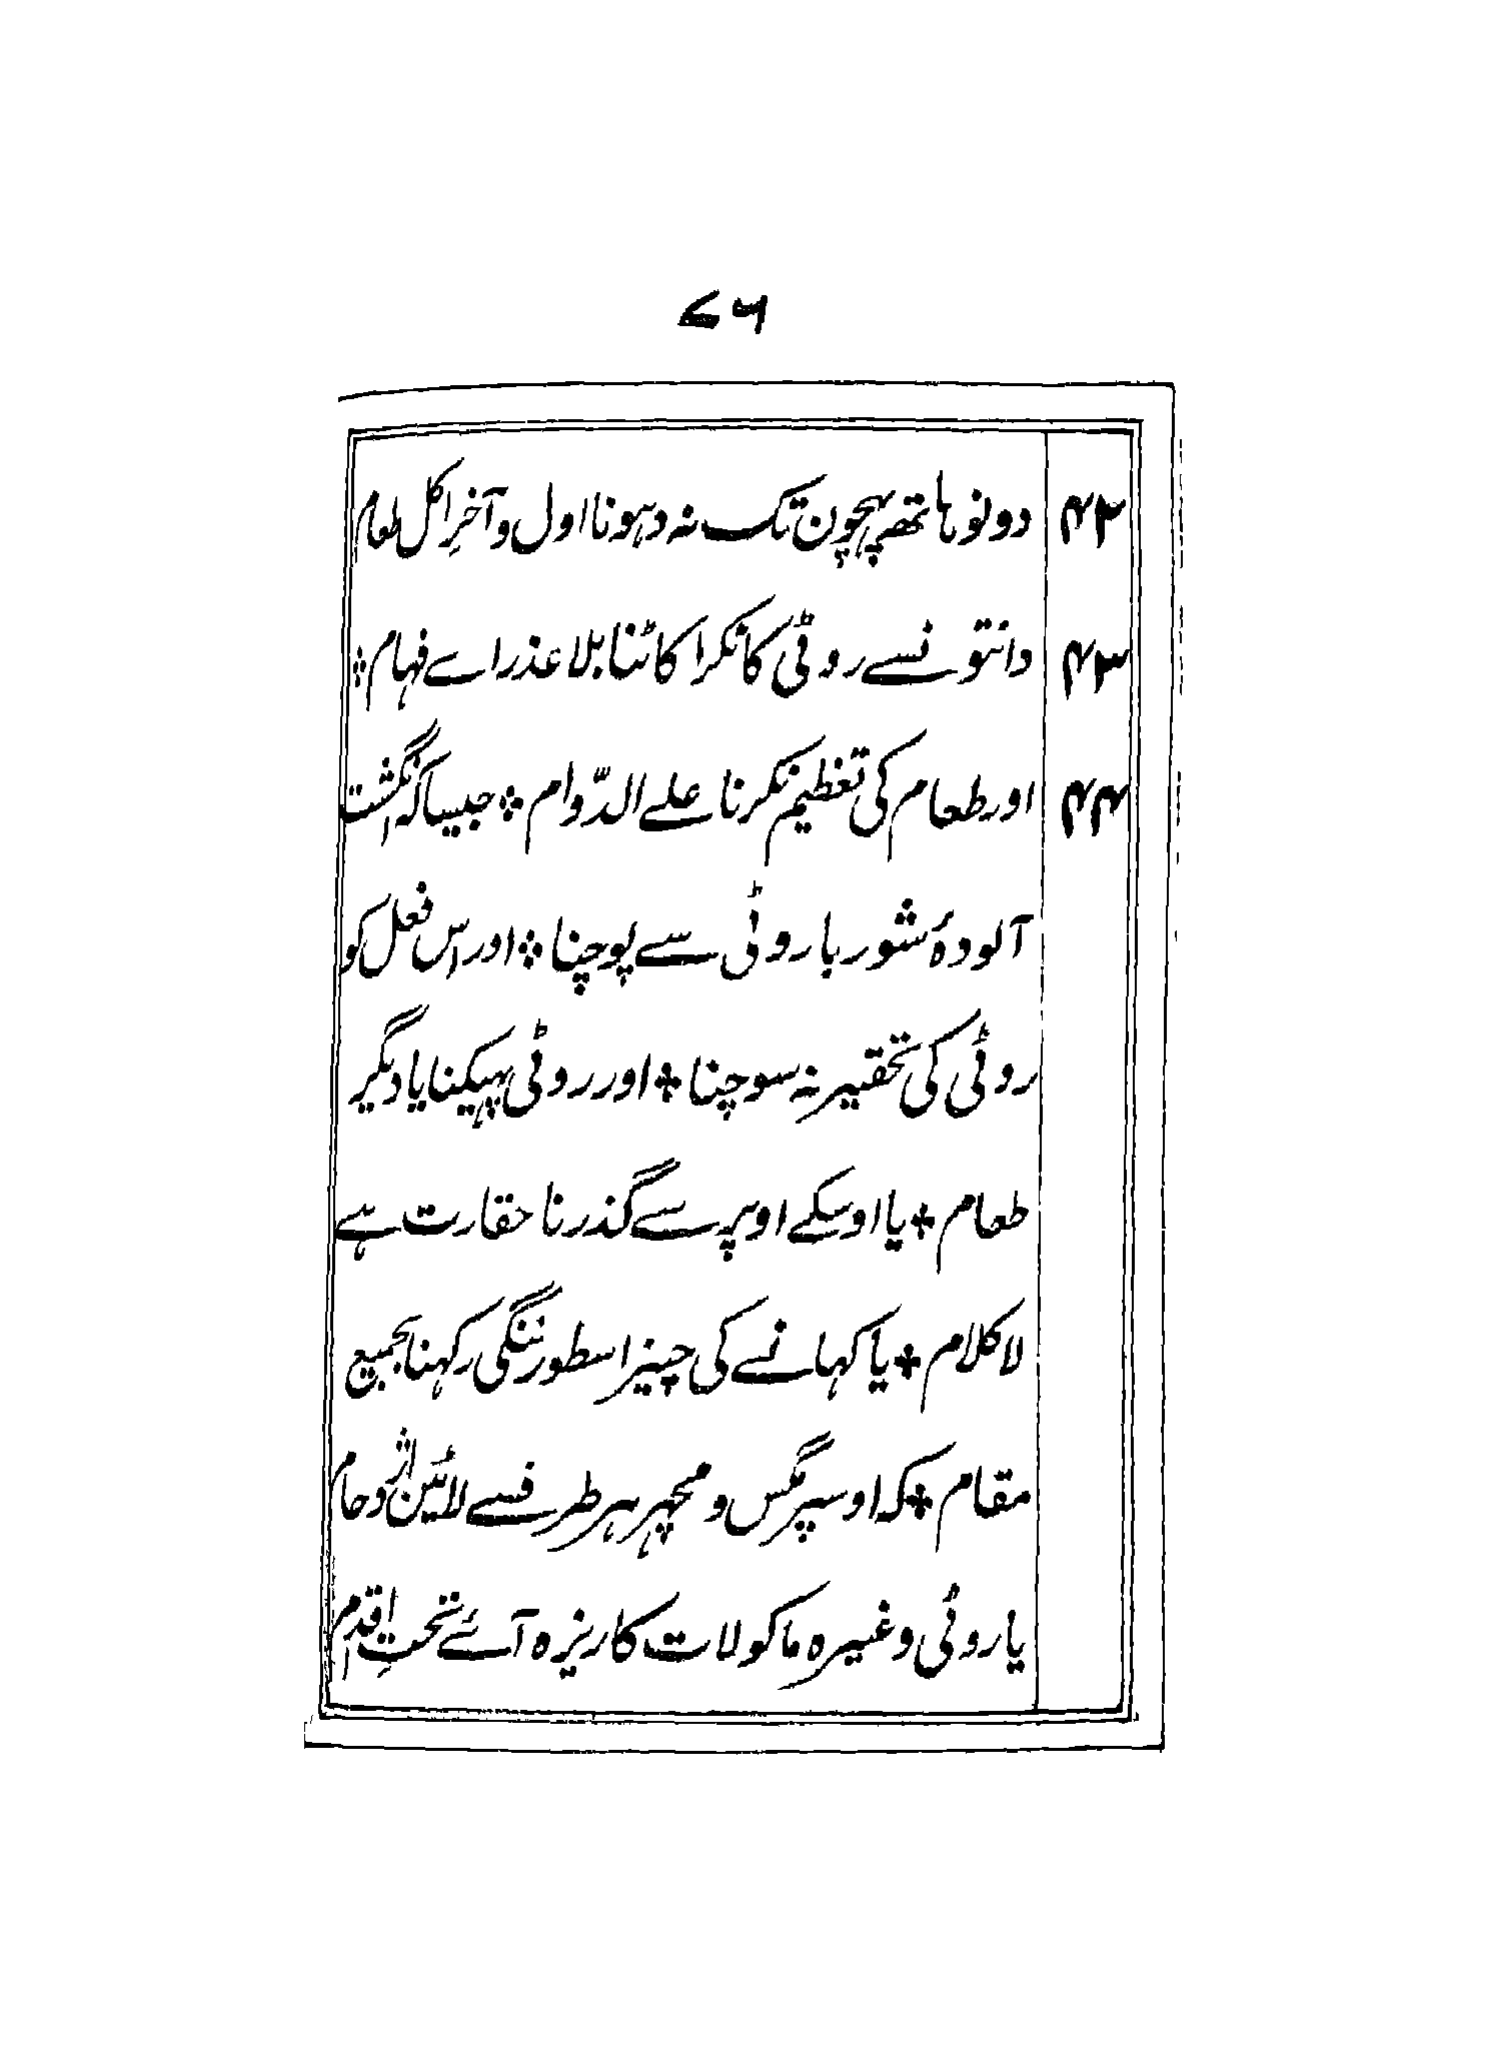 ۷۶
۴۲ دونو ہاتھہ پہچون تک نہ دہونا اول و آخرِ اکل طعام
۴۳ دانتونسے روٹی کا نکرا کاٹنا بلا عذر اے فہام ❖
۴۴ اور طعام کی تعظیم نکرنا علے الدّوام ❖ جیسا کہ انگشت
آلودۂ شوربا روٹی سے پوچنا ❖ اور اس فعل کو
روٹی کی تحقیر نہ سوچنا ❖ اور روٹی پہیکنا یا دیگر
طعام ❖ یا اوسکے اوپر سے گذرنا حقارت ہے
لا کلام ❖ یا کہانے کی چیز اسطور ننگی رکہنا بجمیع
مقام ❖ کہ اوسپر مگس و مچہر ہر طرفسے لائین اژدحام
یا روٹی وغیرہ ماکولات کا ریزہ آئے تحتِ اقدام